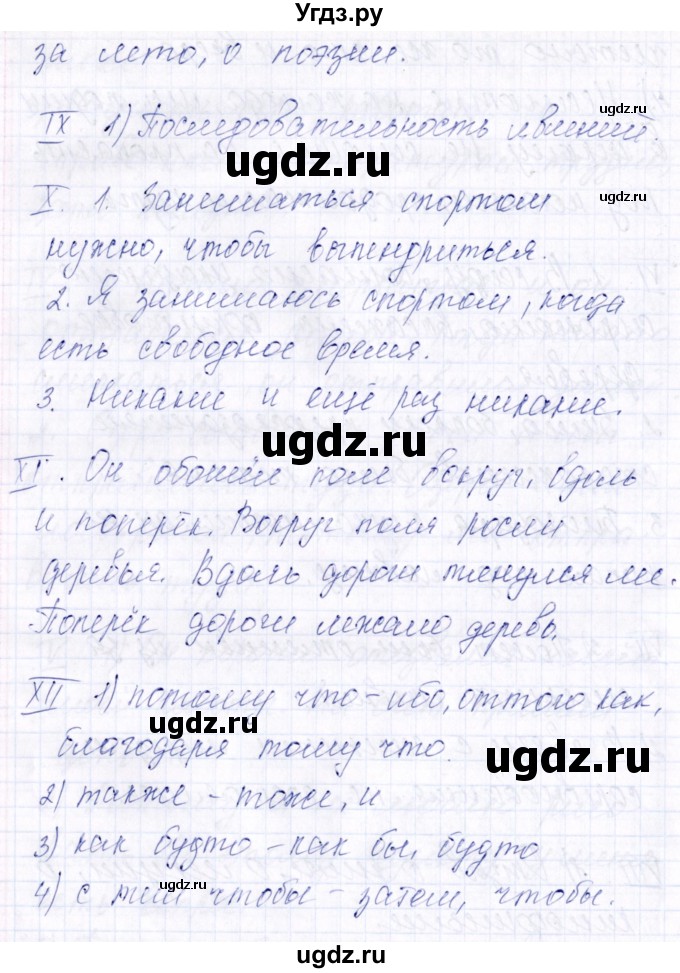 Угдз.ру
за лето, о поэзии.
ugdz.ru
IX 1) Последовательность явлений.
ugdz.ru
ugdz.ru
X. 1. Заниматься спортом
ugdz.ru
нужно, чтобы выпендриться.
2. Я занимаюсь спортом, когда
есть свободное время.
3. Никакие и ещё раз никакие.
ugdz.ru
ugdz.ru
XI. Он обошёл поле вокруг, вдоль
и поперёк. Вокруг поля росли
деревья. Вдоль дороги тянулся лес.
Поперёк дороги лежало дерево.
XII 1) потому что - ибо, оттого как,
ugdz.ru
благодаря тому что.
ugdz.ru
2) также - тоже, и
3) как будто - как бы, будто
4) с тем чтобы - затем, чтобы.
ugdz.ru
ugdz.ru
ugdz.ru